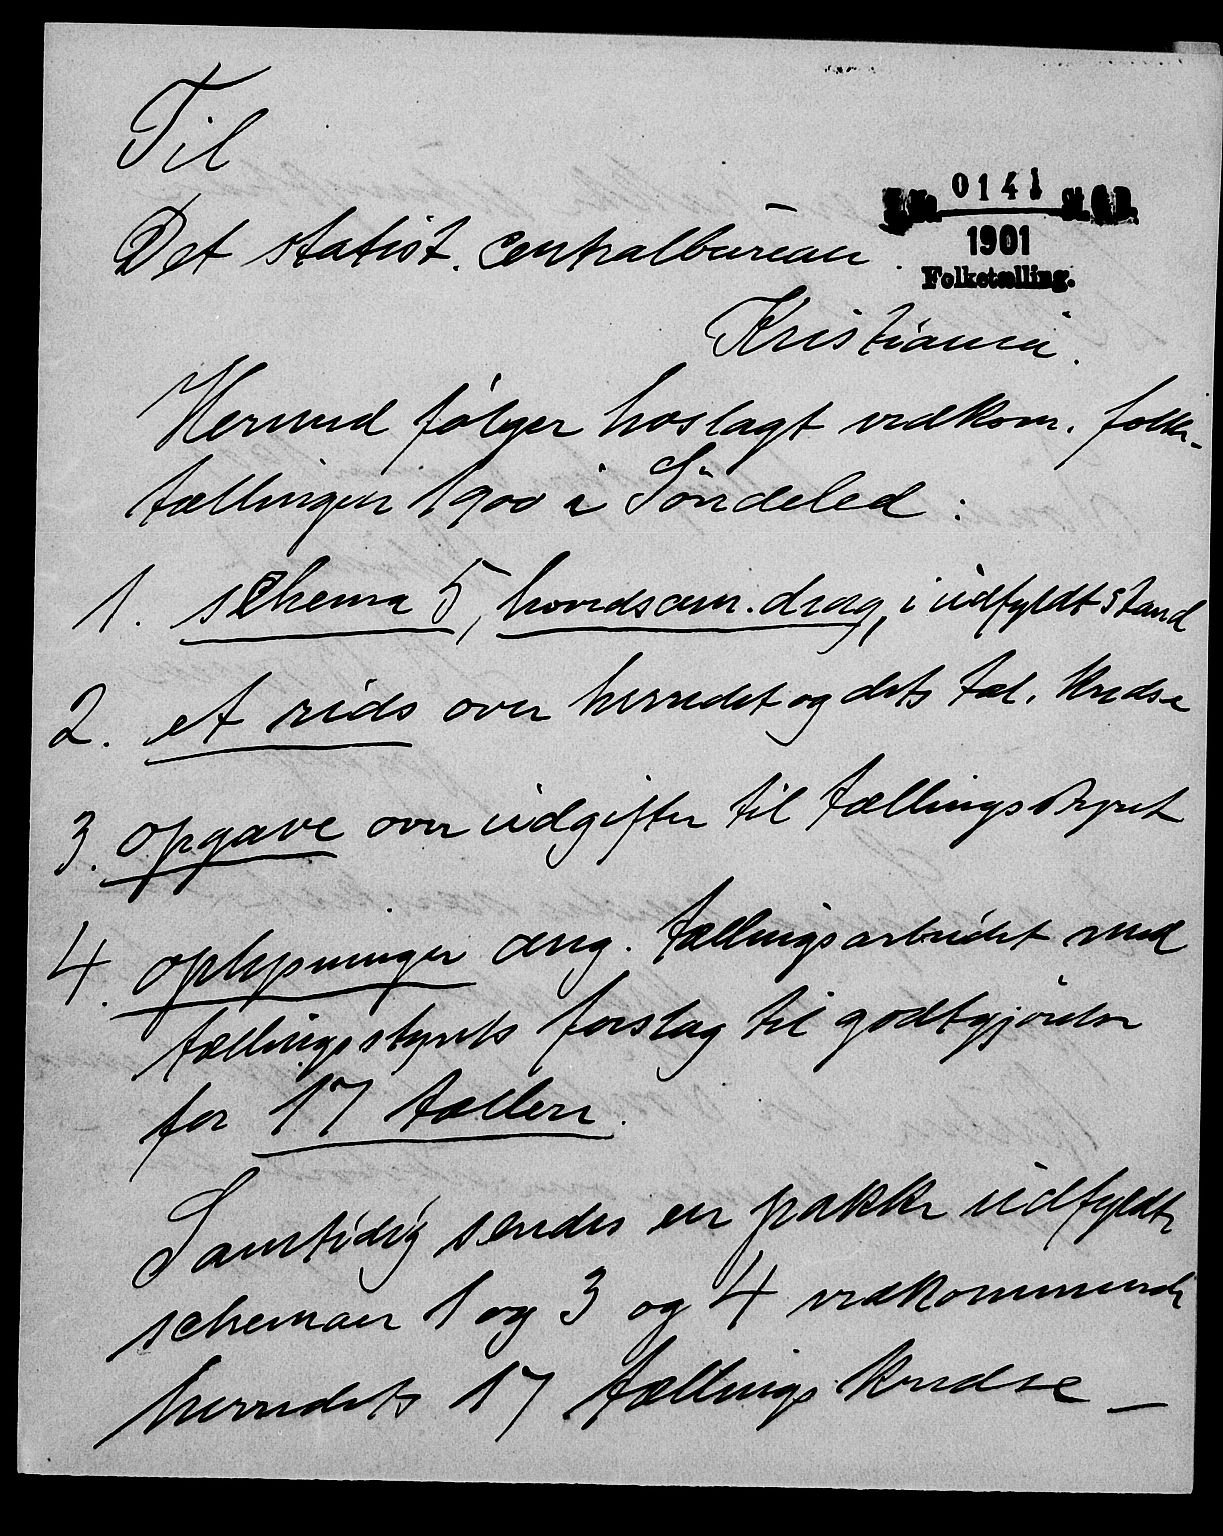 Til
0141
Det statist. Centralbureau.
1901
Folketælling.
Kristiania.
Hermed følger hoslagt vedkom. folke-
tællingen 1900 i Söndeled:
1. schema 5, hovedsam.drag, i udfyldt stand
2. et rids over herredet og dets tæl. kredse
3. opgave over udgifter til tællingsstyret
4. oplysninger ang. tællingsarbeidet med
tællingsstyrets forslag til godtgjörelse
for 17 tællere.
Samtidig sendes en pakke udfyldte
schemaer 1 og 3 og 4 vedkommende
herredets 17 tællingskredse –